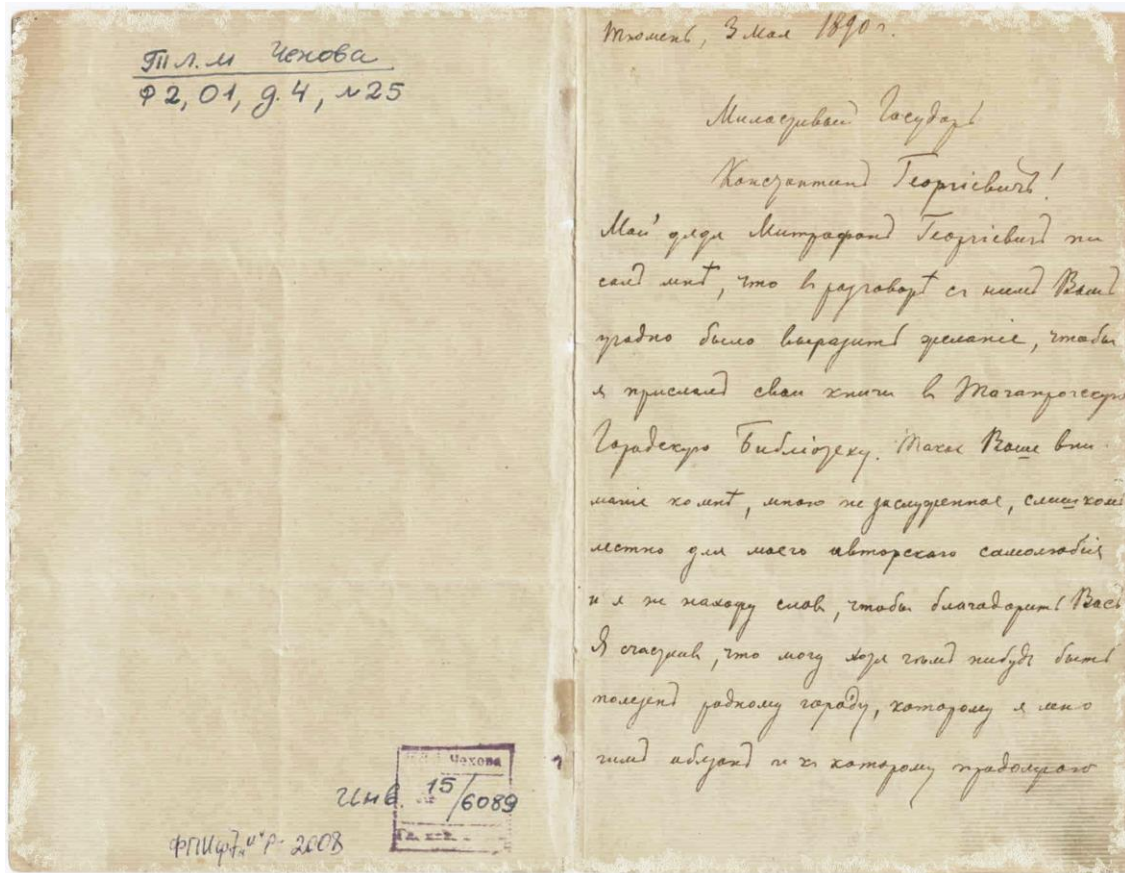 ТЛ.М Чехова
Ф2, 01, д. 4, №25
инв. 15/6089
Чехова
2008
Тюмень, 3 Мая 1890 г.
Милостивый Государь
Константинъ Георгіевичъ!
Мой дядя Митрофанъ Георгіевичъ пи
салъ мнѣ, что въ разговорѣ съ нимъ Вамъ
угодно было выразить желаніе, чтобы
я прислалъ свои книги въ Таганрогскую
Городскую Библіотеку. Такое Ваше вни-
маніе ко мнѣ, мною не заслуженное, слишкомъ
лестно для моего авторскаго самолюбія
и я не нахожу словъ, чтобы благодарить Васъ
Я счастливъ, что могу хотя чѣмъ нибудь быть
полезенъ родному городу, которому я мно
гимъ обязанъ и къ которому продолжаю